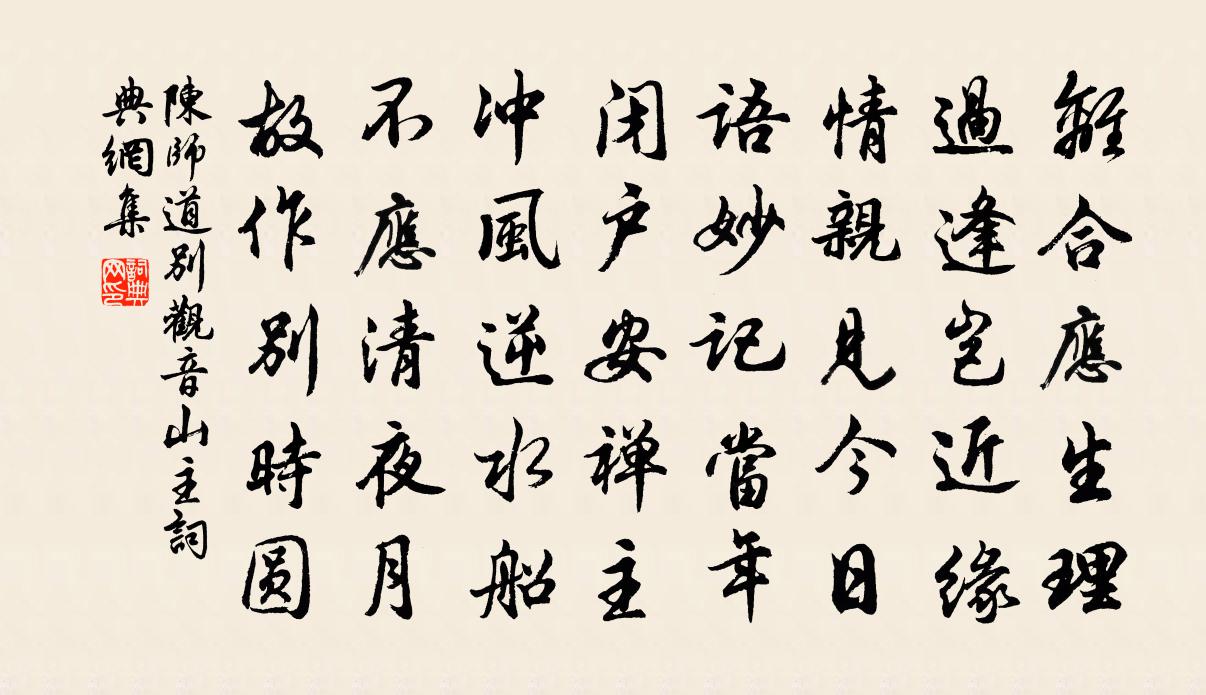 離合應生理
過逢豈近緣
情親見今日
語妙記當年
闭户安禅主
冲風逆水船
不應清夜月
故作别時圆
陳師道别觀音山主詞
典網集
詞典
网印